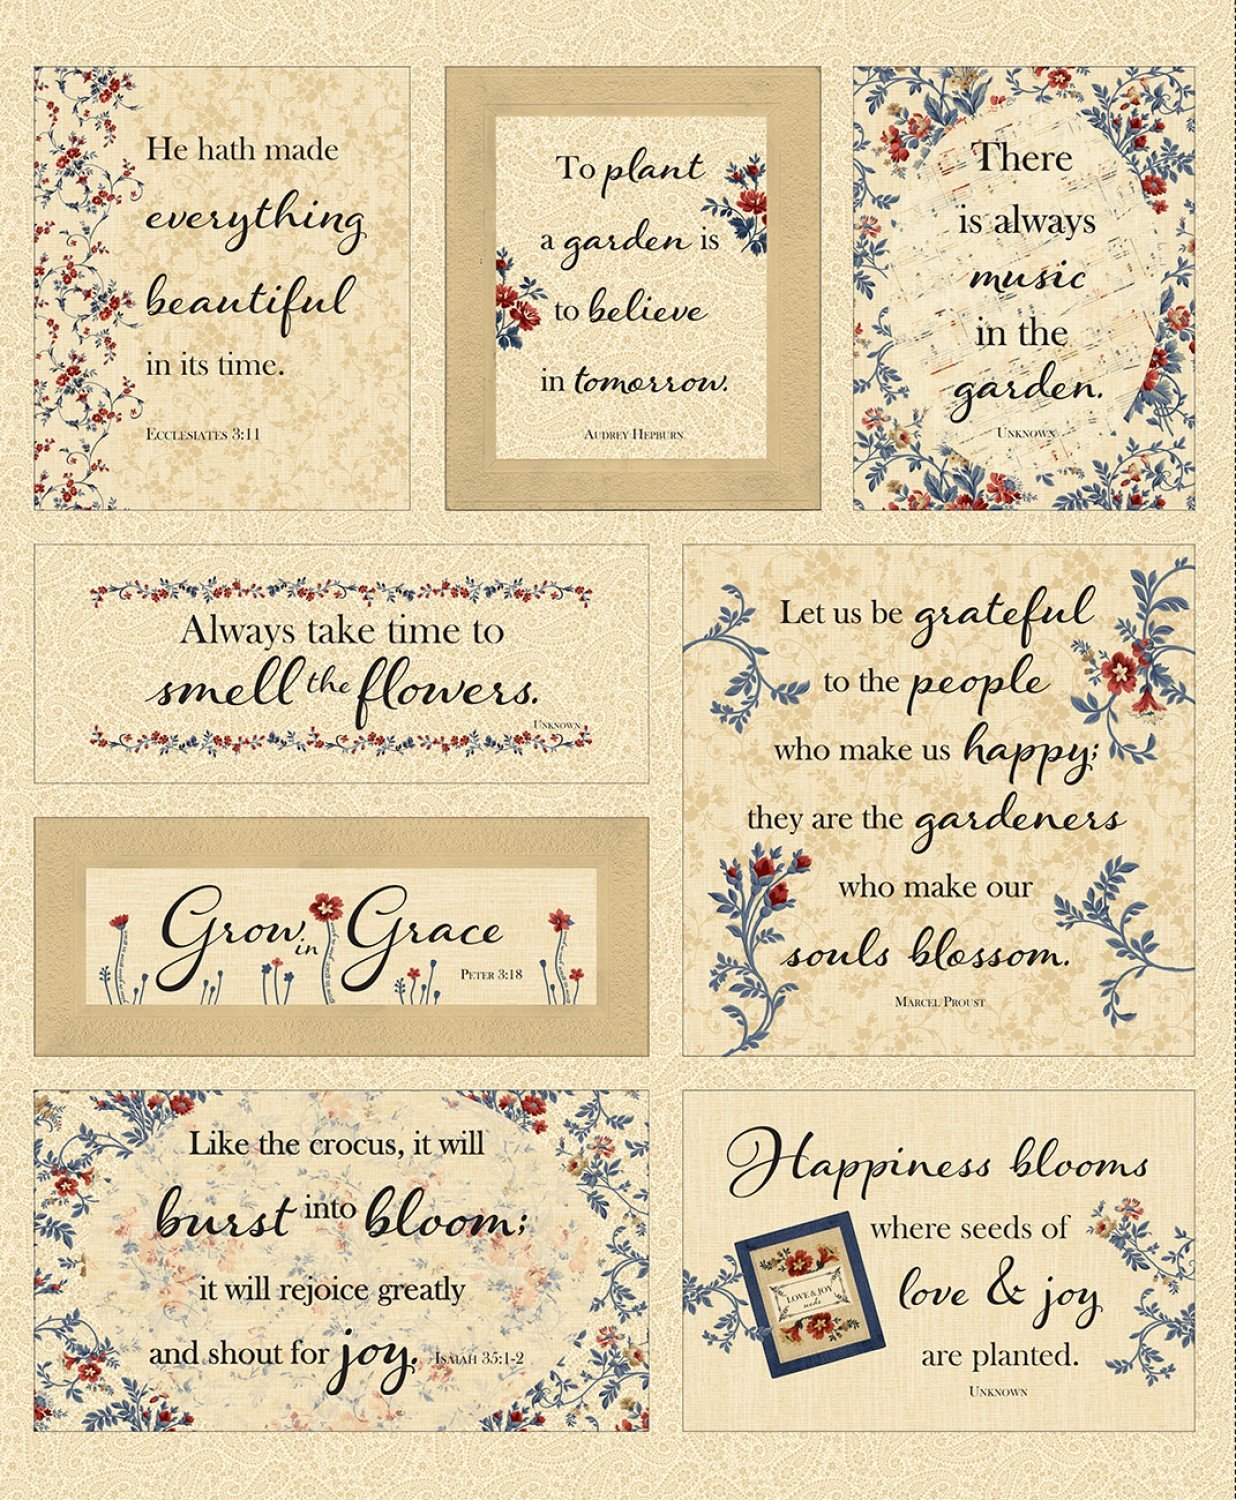 He hath made
everything
beautiful
in its time.
Ecclesiates 3:11
To plant
a garden is
to believe
in tomorrow.
Audrey Hepburn
There
is always
music
in the
garden.
Unknown
Always take time to
smell the flowers.
Unknown
Let us be grateful
to the people
who make us happy;
they are the gardeners
who make our
souls blossom.
Marcel Proust
Grow in Grace
Peter 3:18
Like the crocus, it will
burst into bloom;
it will rejoice greatly
and shout for joy. Isaiah 35:1-2
Happiness blooms
where seeds of
love & joy
are planted.
Unknown
LOVE & JOY
seeds